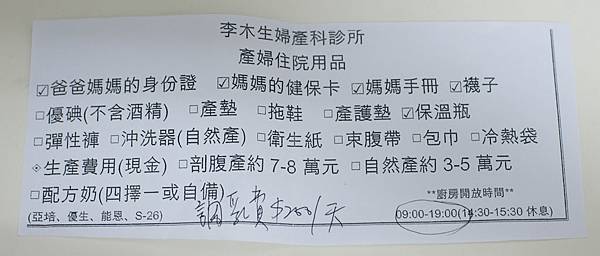 李木生婦產科診所
產婦住院用品
☑爸爸媽媽的身份證 ☑媽媽的健保卡 ☑媽媽手冊 ☑襪子
□優碘(不含酒精) □產墊 □拖鞋 □產護墊 ☑保溫瓶
□彈性褲 □沖洗器(自然產) □衛生紙 □束腹帶 □包巾 □冷熱袋
※生產費用(現金) □剖腹產約 7-8 萬元 □自然產約 3-5 萬元
□配方奶(四擇一或自備) **廚房開放時間**
(亞培、優生、能恩、S-26) 調乳費$200/天 09:00-19:00(14:30-15:30 休息)